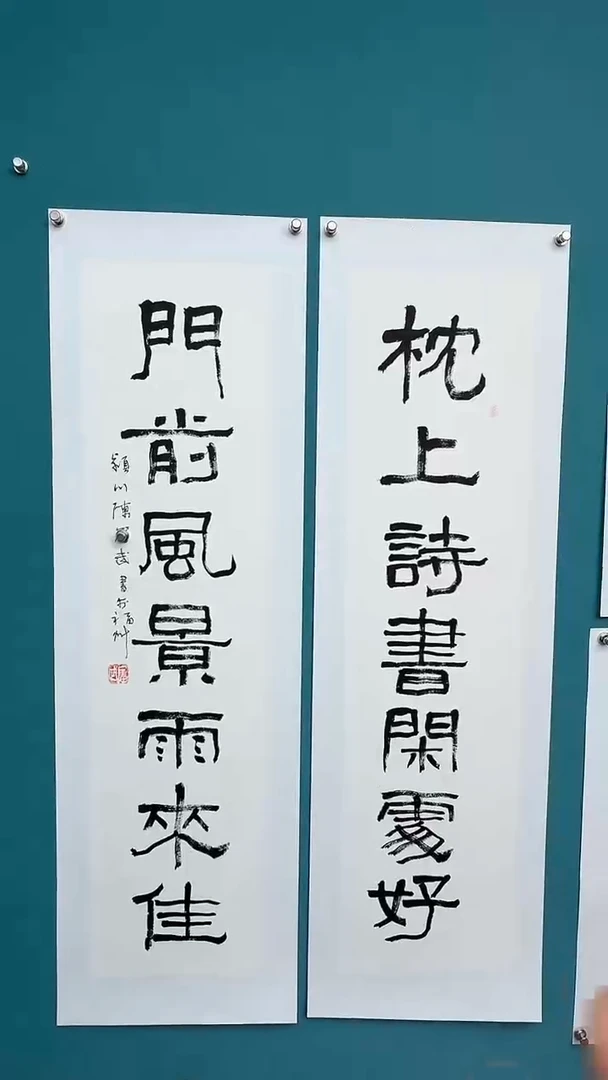 枕上詩書閑處好
門前風景雨來佳
書於福州